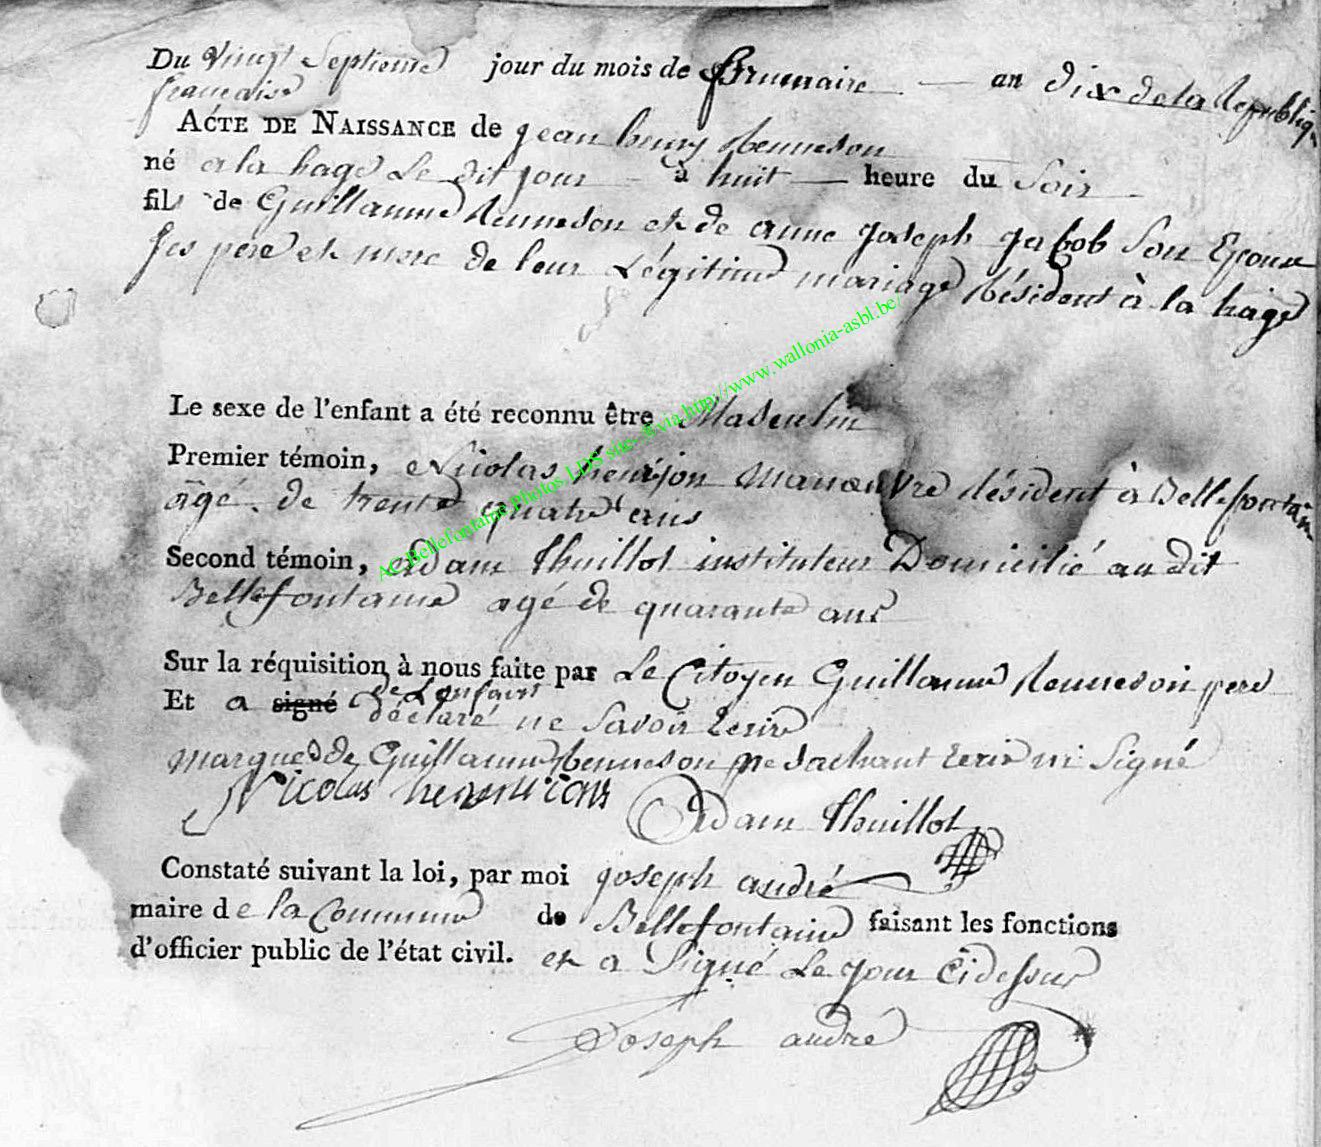 Du vingt Septieme jour du mois de Brumaire an dix de la Republiq
francaise
ACTE DE NAISSANCE de jean henry Renneson
né a la hage Le dit jour à huit heure du Soir
fils de Guillaume Renneson et de anne joseph jacob Son Epouse
Ses pere et mere de leur Légitime mariage Résident à la hage
Le sexe de l'enfant a été reconnu être Masculin
Premier témoin, Nicolas henrijon Manoeuvre Résident à Bellefontain
âgé de trente quatre ans
Second témoin, Adam Thuillot instituteur Domicilié au dit
Bellefontaine agé de quarante ans
Sur la réquisition à nous faite par Le Citoyen Guillaume Renneson pere
de Lenfant
Et a signé déclaré ne Savoir Ecrire
marque de Guillaume Renneson ne Sachant Ecrir ni Signé
Nicolas
Adam Thuillot
Constaté suivant la loi, par moi joseph andré
maire de la Commune de Bellefontaine faisant les fonctions
d'officier public de l'état civil. et a Signé Le jour Cidessus
Joseph andré
AC Bellefontaine Photos LDS site via http://www.wallonia-asbl.be/